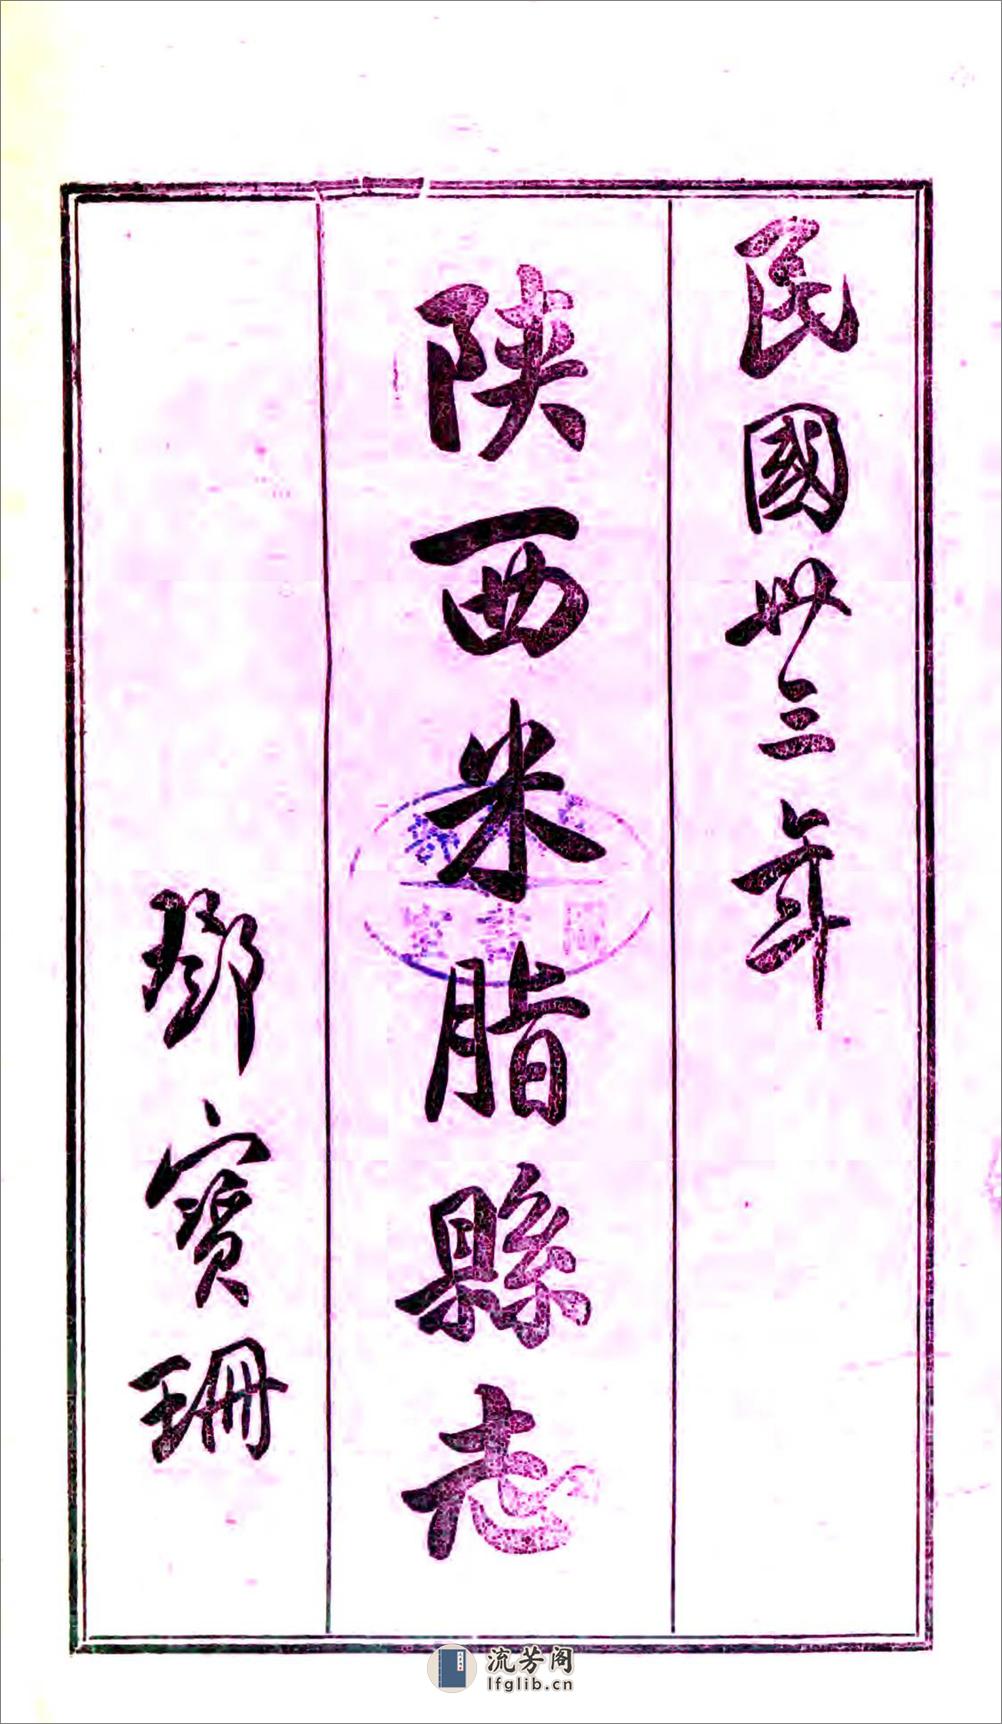 民國卅三年
陝西米脂縣志
鄧寶珊
流芳阁
lfglib.cn